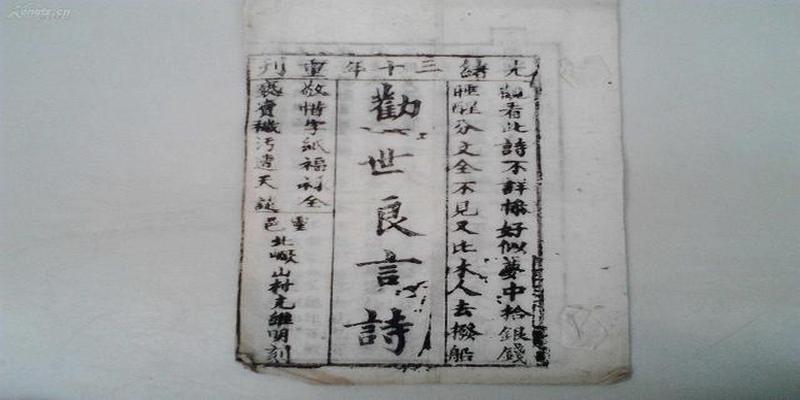 光緒三十年重刊
觀看此詩不詳樣好似夢中拾銀錢
睡醒分文全不見又比木人去撥船
勸世良言詩
敬惜字紙福利全
褻賣穢污遭天誅
靈邑
北巖山村元維明刻